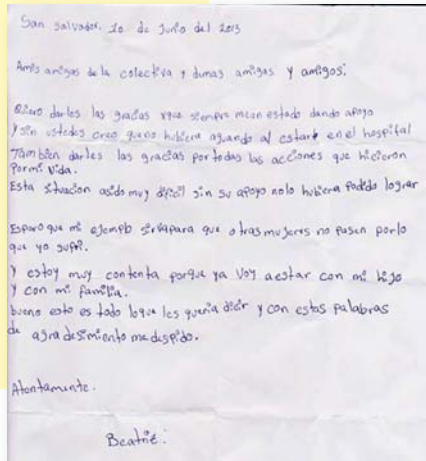 San Salvador. 20 de Junio del 2013
Amis amigas de la colectiva y dumas amigas y amigos:
Quiero darles las gracias xque siempre mean estado dando apoyo
y sin ustedes creo queno hubiera aguando al estara en el hospital
Tambien darles las gracias por todas las acciones que hicieron
pormi vida.
Esta situacion asido muy dificil sin su apoyo nolo hubiera podido lograr
Espero que mi ejemplo sirvapara que otras mujeres no pasen porlo
que yo sufri.
y estoy muy contenta porque ya voy aestar con mi hijo
y con mi familia.
bueno esto es todo loque les queria dicir y con estas palabras
de agradesimiento medespido.
Atentamente.
Beatriz.